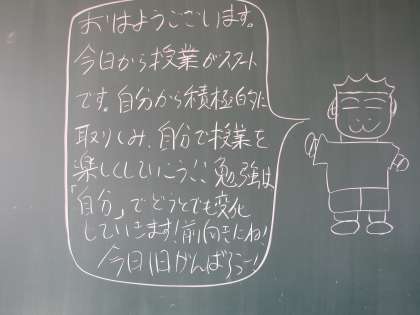 おはようございます。
今日から授業がスタート
です。自分から積極的に
取りくみ、自分で授業を
楽しくしていこう!!勉強は
「自分」でどうとでも変化
していきます!前向きにね!
今日1日がんばろうー!